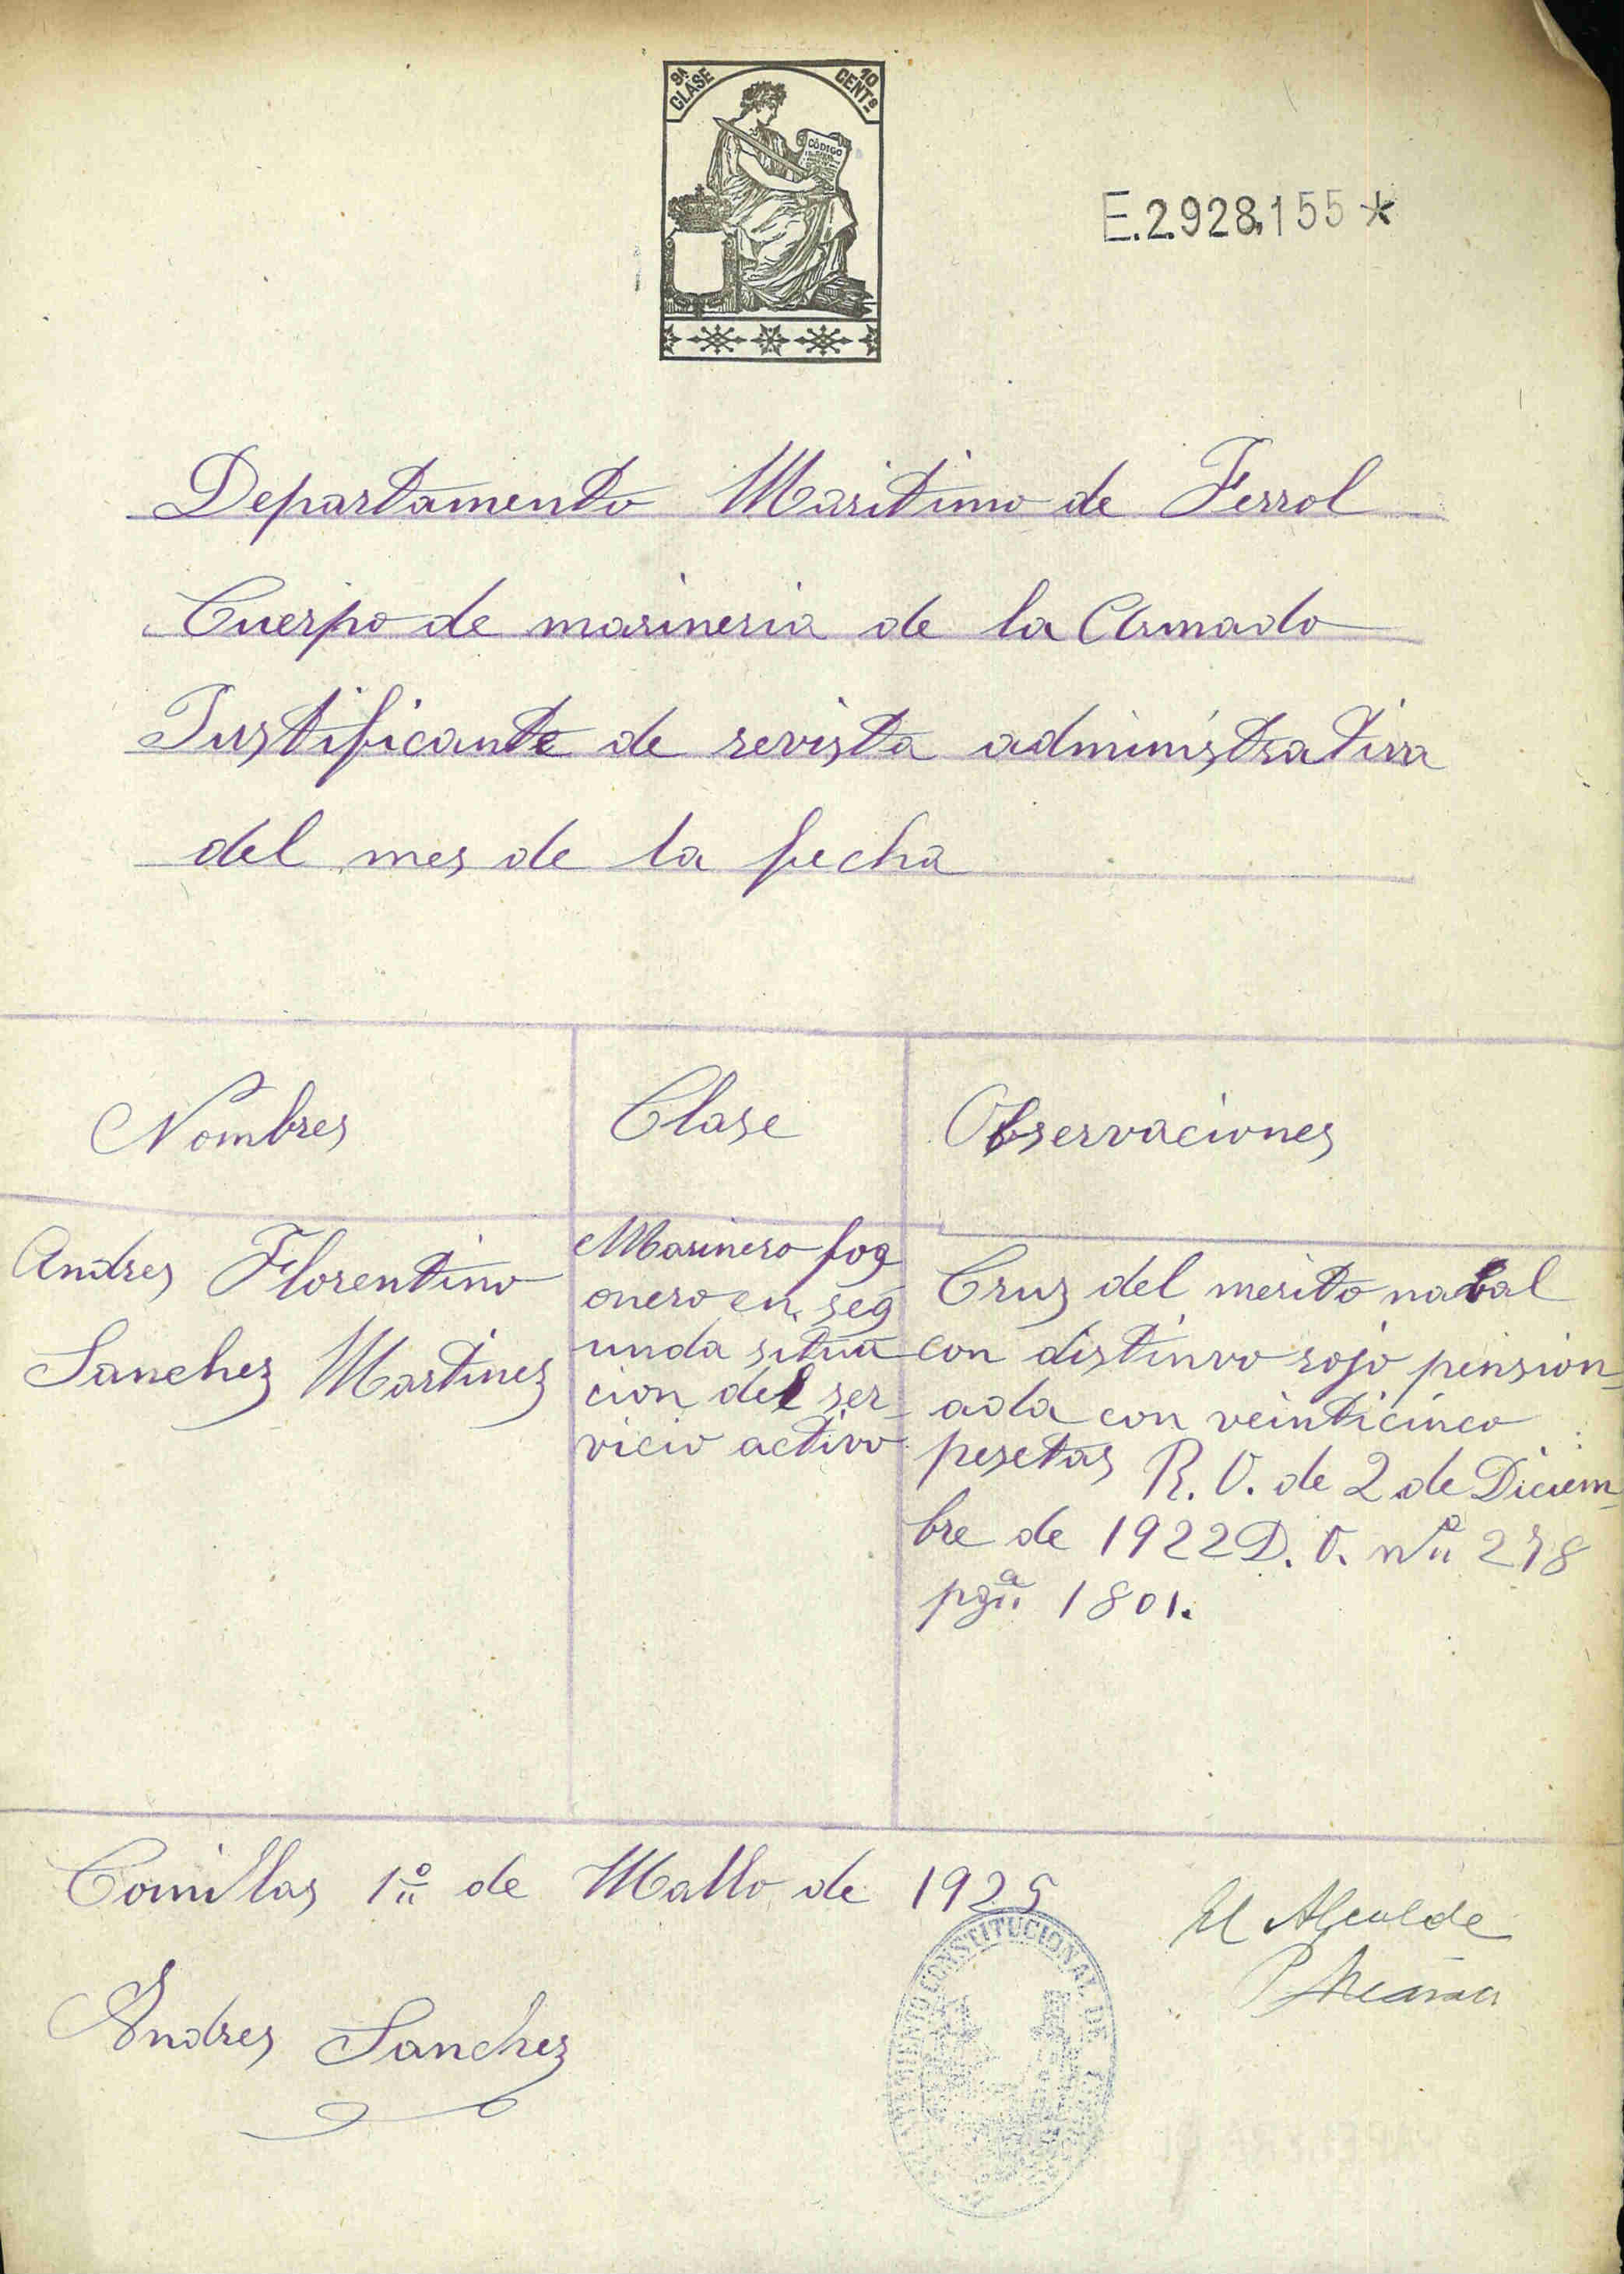 9ª CLASE
10 CENTS
CÓDIGO
E.2.928,155 *
Departamento Maritimo de Ferrol
Cuerpo de marineria de la Armada
Justificante de revista administrativa
del mes de la fecha
Nombres
Clase
Observaciones
Andres Florentino
Sanchez Martinez
Marinero fog
onero en seg
unda situa
cion del ser-
vicio activo
Cruz del merito nabal
con distinvo rojo pension-
ada con veinticinco
pesetas R. O. de 2 de Diciem-
bre de 1922 D. O. nº 278
pgª 1801.
Comillas 1º de Mallo de 1925
El Alcalde
Andres Sanchez
AYUNTAMIENTO CONSTITUCIONAL DE